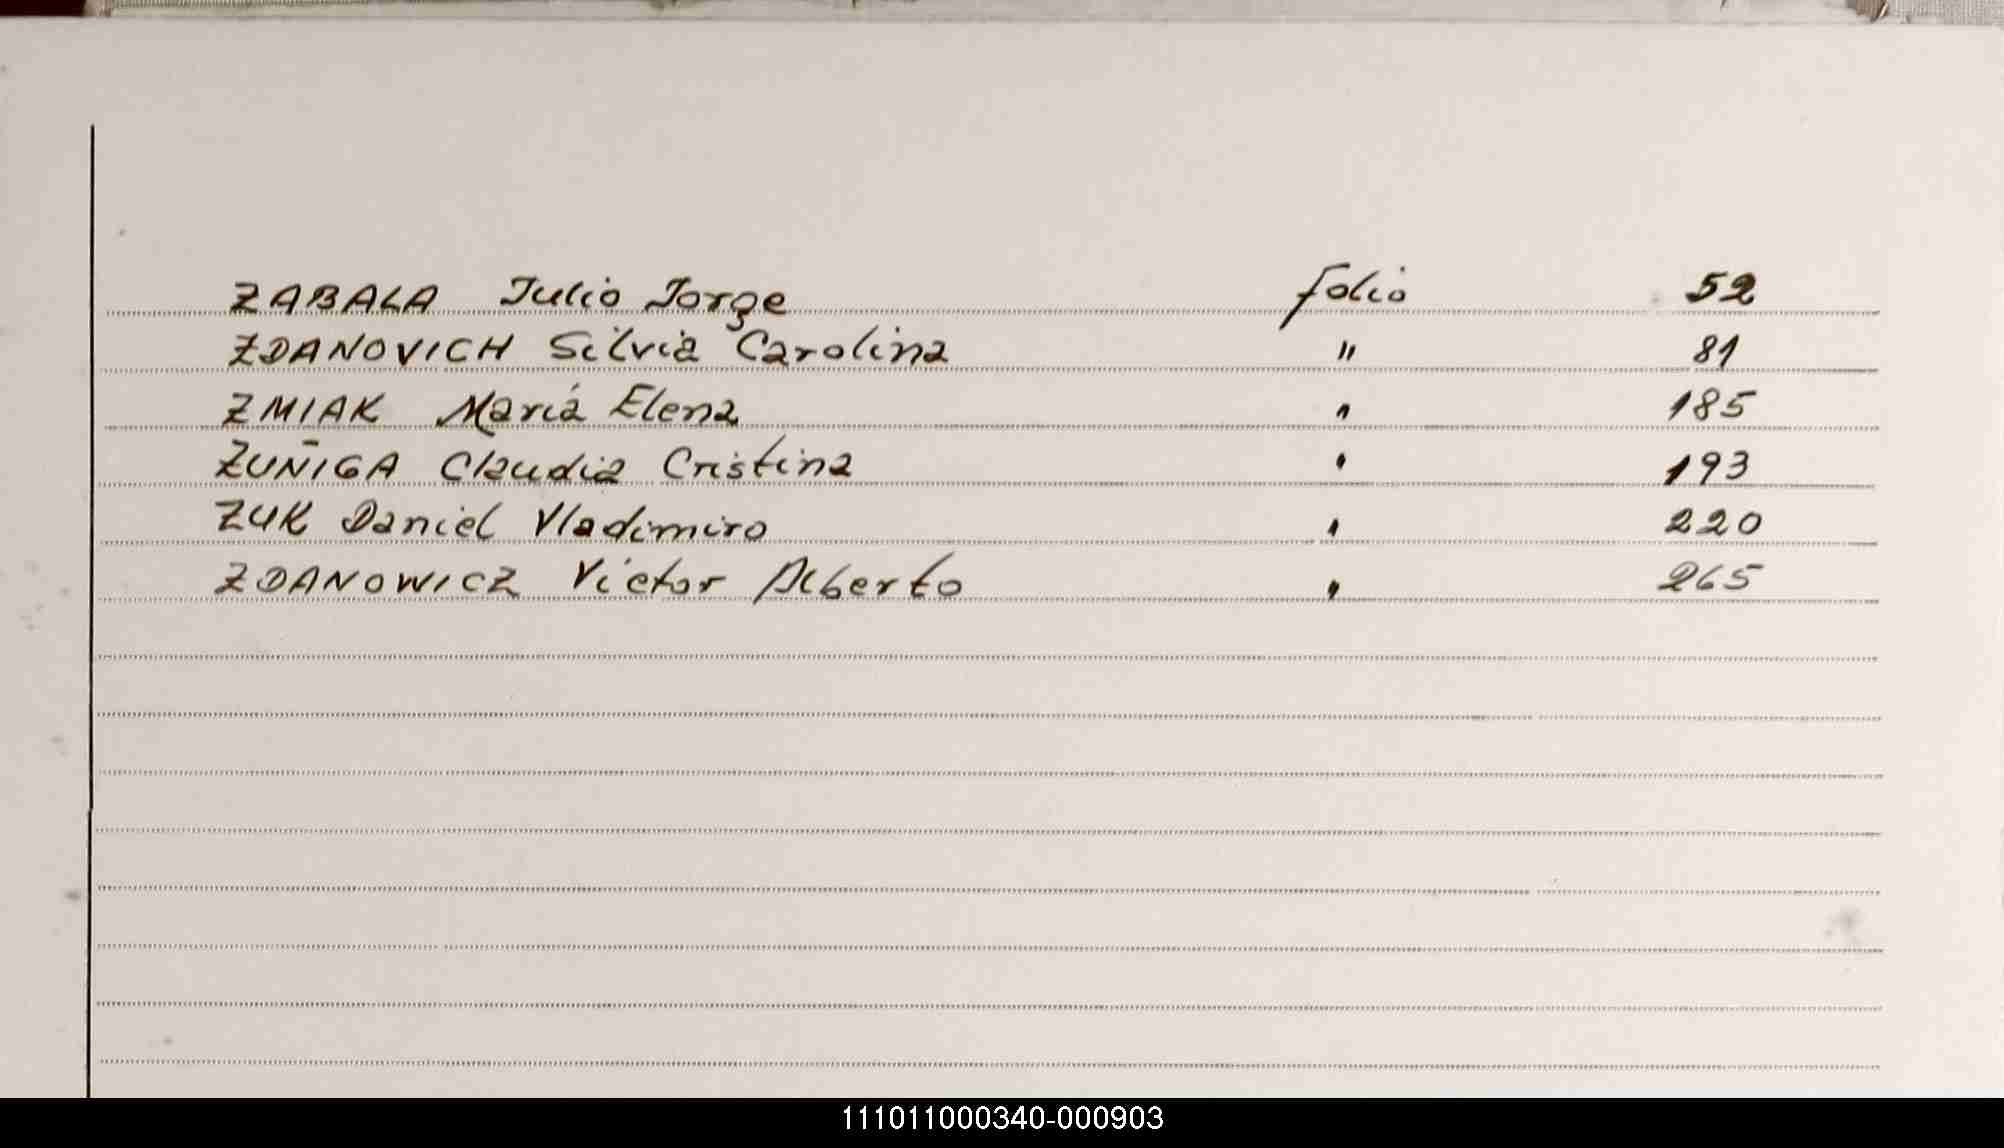 ZABALA Julio Jorge folio 52
ZDANOVICH Silvia Carolina " 81
ZMIAK María Elena " 185
ZUÑIGA Claudia Cristina " 193
ZUK Daniel Vladimiro " 220
ZDANOWICZ Victor Alberto " 265
111011000340-000903